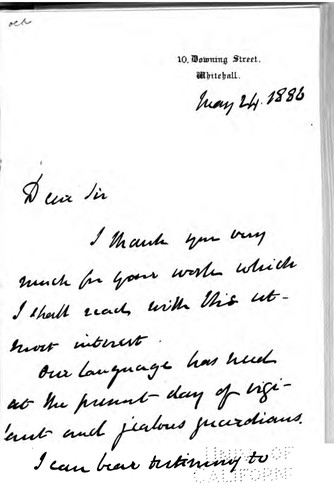 10, Downing Street,
Whitehall.
May 24. 1886
Dear Sir
I thank you very
much for your work which
I shall read with the ut-
most interest.
Our language has need
at the present day of vigi-
lant and jealous guardians.
I can bear testimony to
UNIV. OF
CALIFORNIA